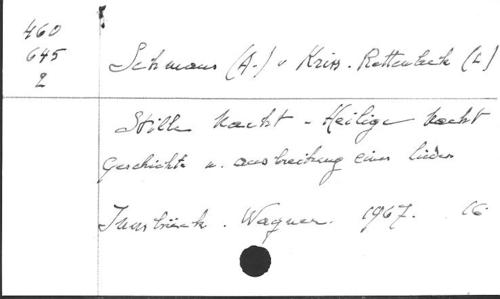 460
645
2
Schmaus (A.) u Kriss. Rettenbeck (L)
Stille Nacht - Heilige Nacht
Geschichte u. ausbreitung eines liedes
Innsbrück. Wagner. 1967. 16